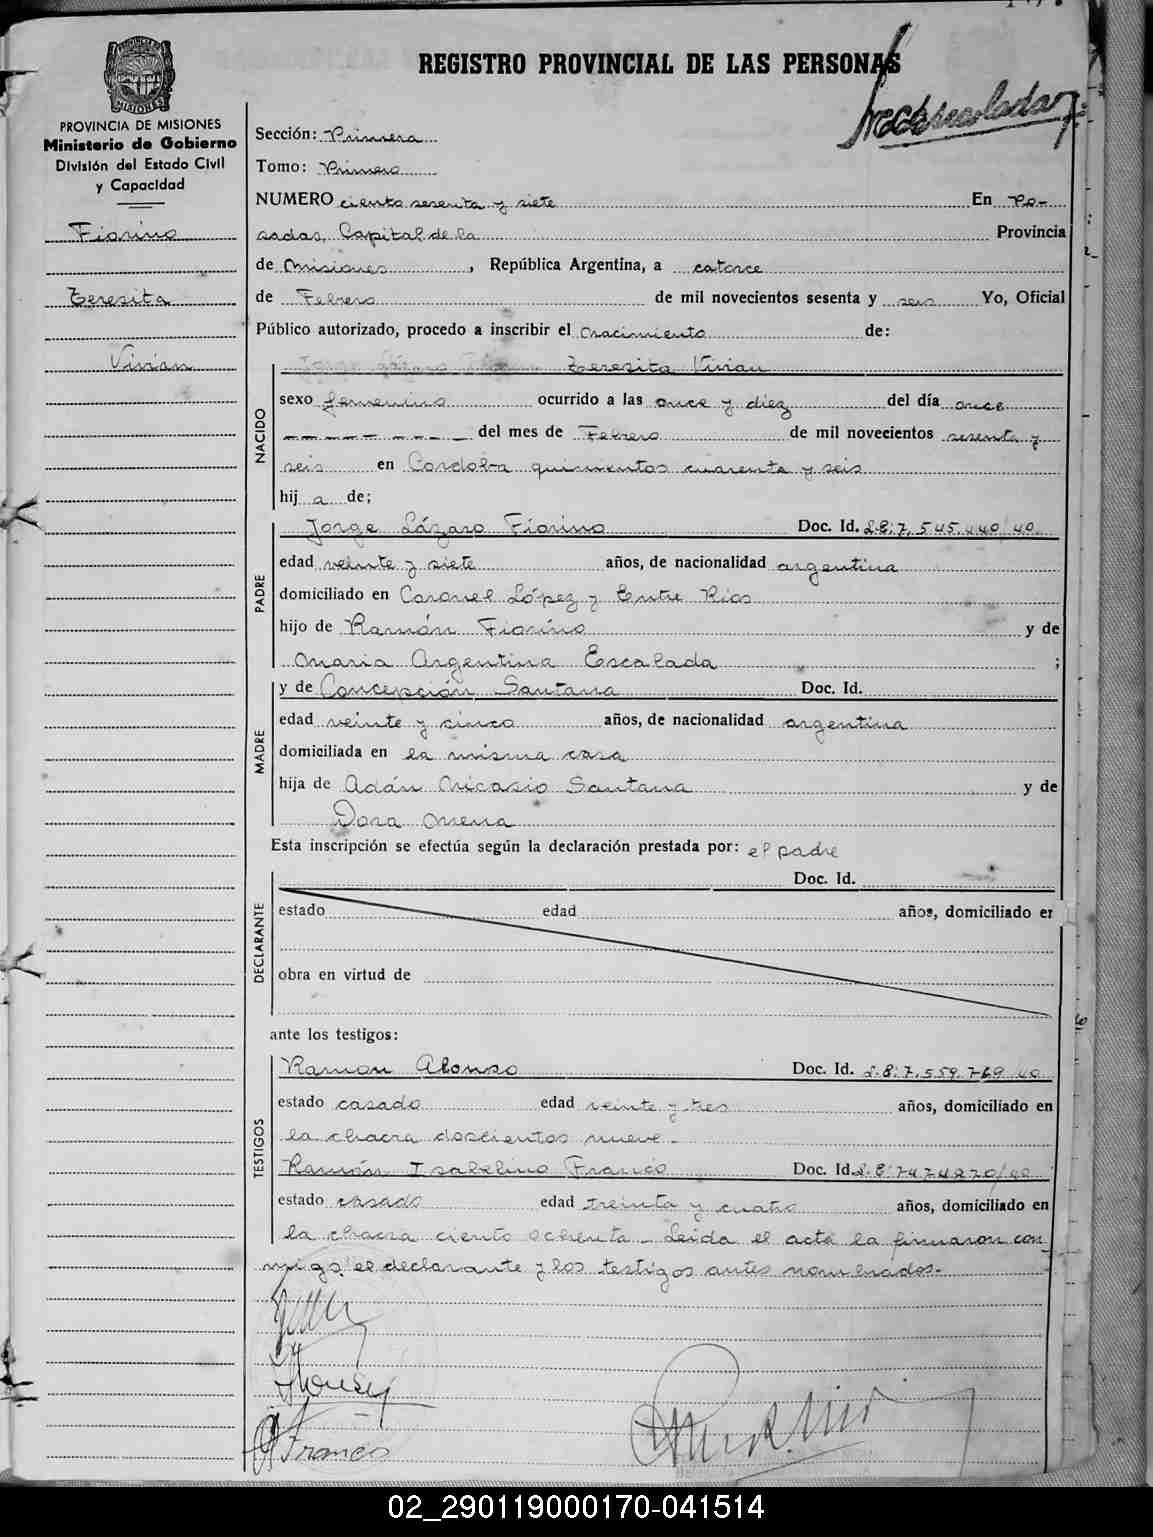 REGISTRO PROVINCIAL DE LAS PERSONAS
PROVINCIA DE MISIONES
Ministerio de Gobierno
División del Estado Civil
y Capacidad
Fiorino
Teresita
Vivian
Sección: Primera
Tomo: Primero
NUMERO ciento sesenta y siete En Po-
sadas, Capital de la Provincia
de Misiones, República Argentina, a catorce
de Febrero de mil novecientos sesenta y seis Yo, Oficial
Público autorizado, procedo a inscribir el nacimiento de:
NACIDO
Teresita Vivian
sexo femenino ocurrido a las once y diez del día once
del mes de Febrero de mil novecientos sesenta y
seis en Cordoba quinientos cuarenta y seis
hij a de;
PADRE
Jorge Lázaro Fiorino Doc. Id. 7.545.440/40
edad veinte y siete años, de nacionalidad argentina
domiciliado en Coronel López y Entre Rios
hijo de Ramón Fiorino y de
Maria Argentina Escalada ;
MADRE
y de Concepción Santana Doc. Id.
edad veinte y cinco años, de nacionalidad argentina
domiciliada en la misma casa
hija de Adán Nicasio Santana y de
Dora Mena
Esta inscripción se efectúa según la declaración prestada por: el padre
DECLARANTE
Doc. Id.
estado edad años, domiciliado en
obra en virtud de
ante los testigos:
TESTIGOS
Ramon Alonso Doc. Id. 7.559.769 40
estado casado edad veinte y tres años, domiciliado en
la chacra doscientos nueve.
Ramón Isabelino Franco Doc. Id.
estado casado edad treinta y cuatro años, domiciliado en
la chacra ciento ochenta - Leida el acta la firmaron con-
migo el declarante y los testigos antes nombrados.-
Franco
02_290119000170-041514